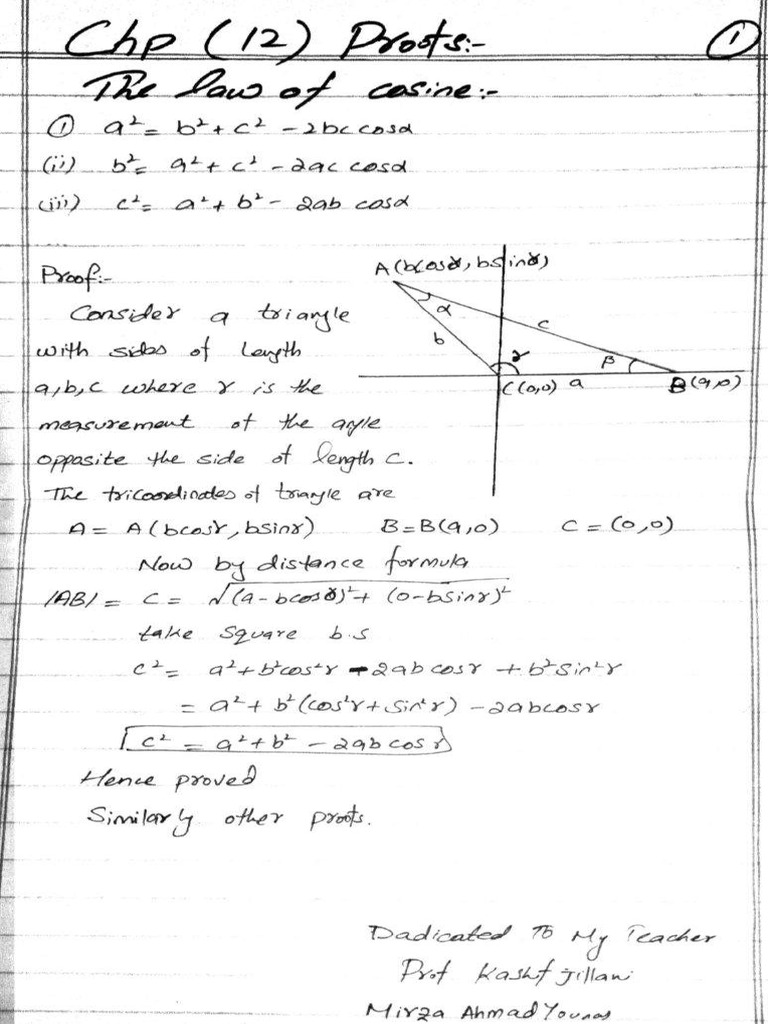 Chp (12) Proofs:-
①
The law of cosine:-
① a² = b² + c² - 2bc cosα
(ii) b² = a² + c² - 2ac cosα
(iii) c² = a² + b² - 2ab cosα
Proof:-
A(bcosγ, bsinγ)
Consider a triangle
α
c
with sides of Length
b
γ
β
a, b, c where γ is the
C(0,0)
a
B(a,0)
measurement of the angle
opposite the side of length c.
The tricoordinates of triangle are
A = A(bcosγ, bsinγ) B = B(a,0) C = (0,0)
Now by distance formula
|AB| = C = √(a-bcosγ)² + (0-bsinγ)²
take square b.s
c² = a² + b²cos²γ - 2ab cosγ + b²sin²γ
= a² + b²(cos²γ + sin²γ) - 2abcosγ
c² = a² + b² - 2ab cosγ
Hence proved
Similarly other proofs.
Dadicated To My Teacher
Prof Kashif Jillani
Mirza Ahmad Younas